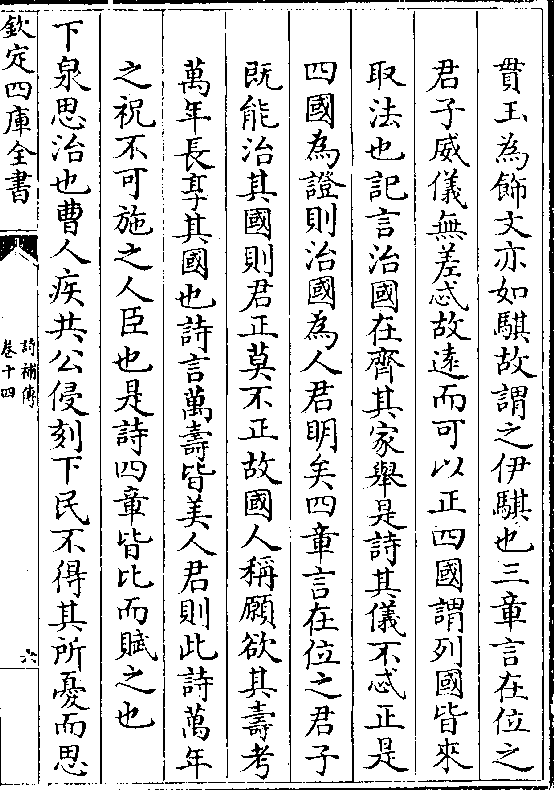 貫玉為飾文亦如騏故謂之伊騏也三章言在位之
君子威儀無差忒故逺而可以正四國謂列國皆來
取法也記言治國在齊其家舉是詩其儀不忒正是
四國為證則治國為人君明矣四章言在位之君子
既能治其國則君正莫不正故國人稱願欲其壽考
萬年長享其國也詩言萬壽皆美人君則此詩萬年
之祝不可施之人臣也是詩四章皆比而賦之也
下泉思治也曹人疾共公侵刻下民不得其所憂而思
欽定四庫全書
詩補傳
卷十四
六